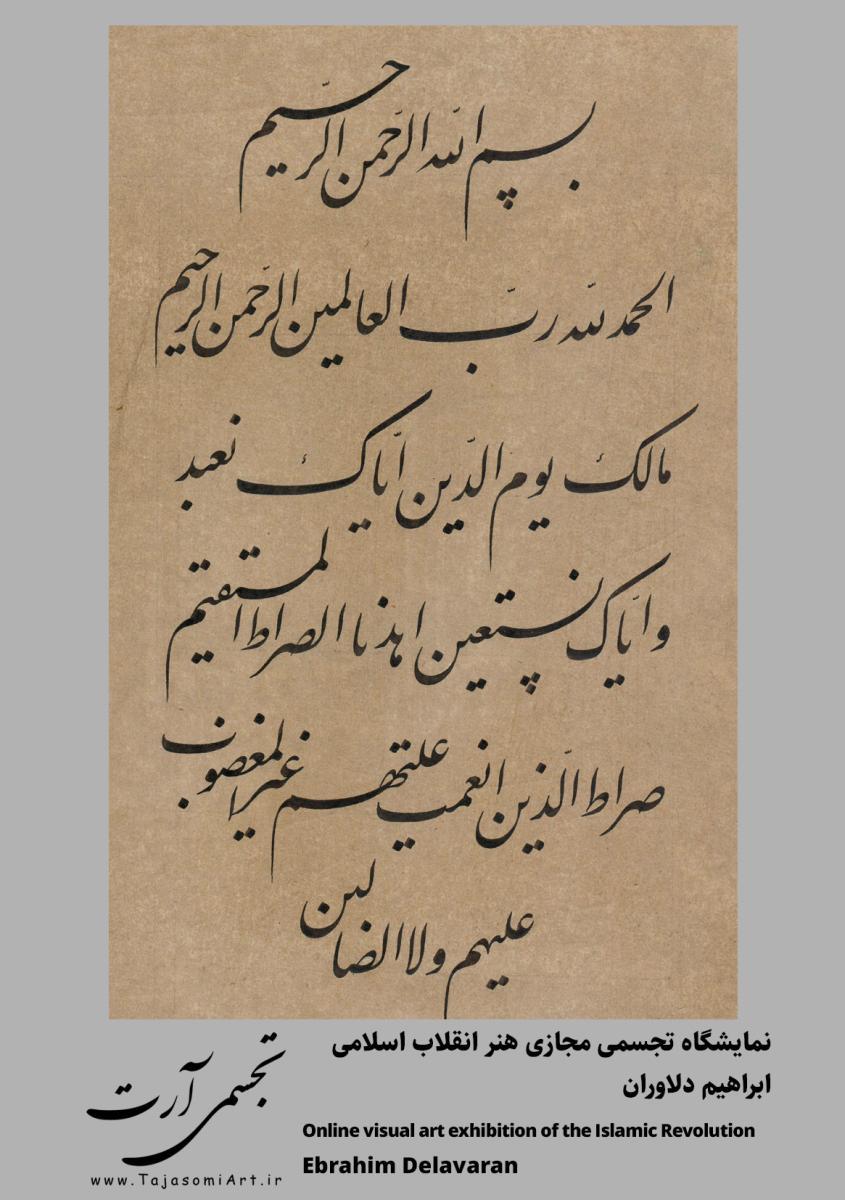 بسم الله الرّحمن الرّحیم
الحمد لله ربّ العالمین الرّحمن الرحیم
مالک یوم الدّین ایّاک نعبد
و ایّاک نستعین اهدنا الصراط المستقیم
صراط الّذین انعمت علیهم غیر المغضوب
علیهم ولا الضالین
نمایشگاه تجسمی مجازی هنر انقلاب اسلامی
ابراهیم دلاوران
Online visual art exhibition of the Islamic Revolution
Ebrahim Delavaran
تجسمی آرت
www.TajasomiArt.ir